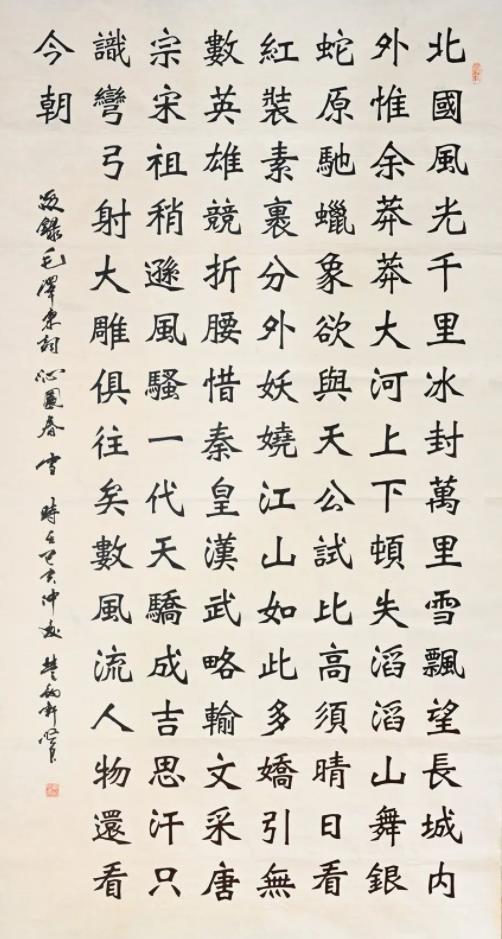 北國風光千里冰封萬里雪飄望長城内
外惟余莽莽大河上下頓失滔滔山舞銀
蛇原馳蠟象欲與天公試比高須晴日看
紅裝素裹分外妖嬈江山如此多嬌引無
數英雄競折腰惜秦皇漢武略輸文采唐
宗宋祖稍遜風騷一代天驕成吉思汗只
識彎弓射大雕俱往矣數風流人物還看
今朝
敬錄毛澤東詞沁園春雪 時在己亥仲春